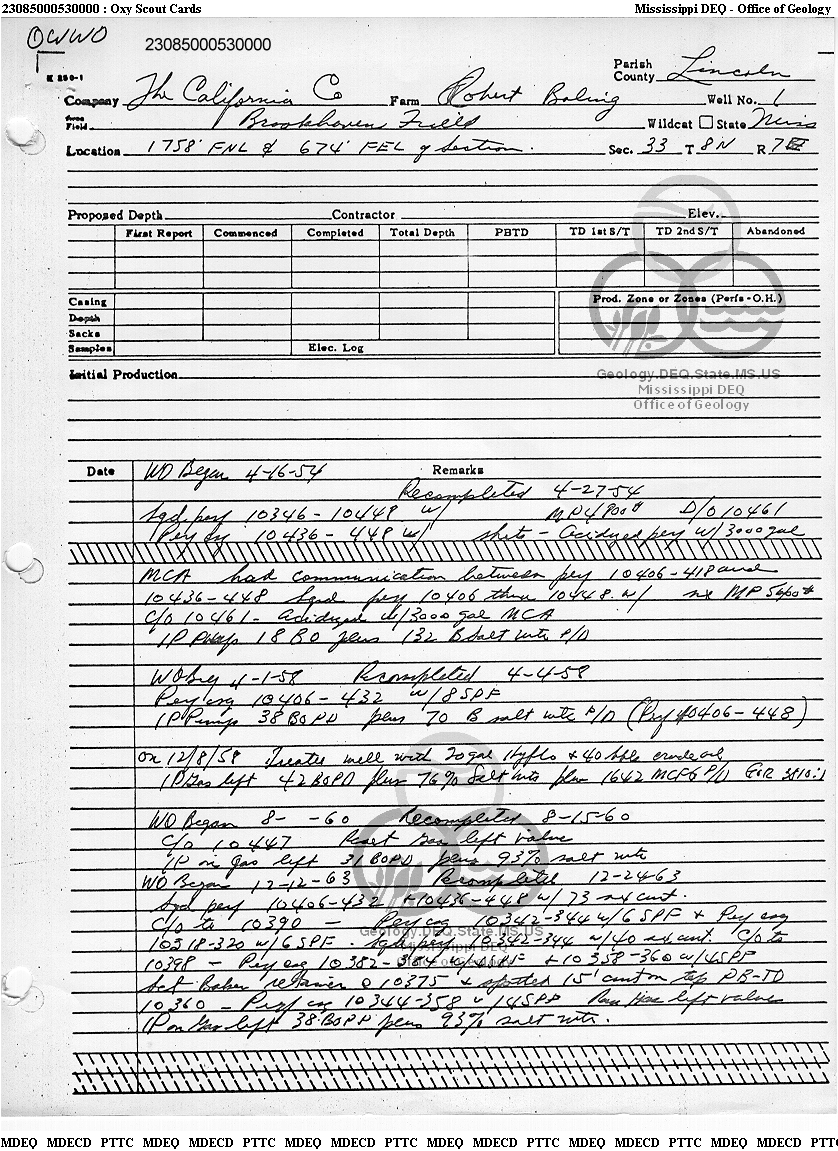 23085000530000 : Oxy Scout Cards Mississippi DEQ - Office of Geology
OWWO 23085000530000
K 250-1
Parish
County Lincoln
Company The California Co Farm Robert Boling Well No. 1
Area
Field Brookhaven Field Wildcat State Miss
Location 1758' FNL & 674' FEL of Section. Sec. 33 T 8N R 7E
Proposed Depth Contractor Elev.
First Report Commenced Completed Total Depth PBTD TD 1st S/T TD 2nd S/T Abandoned
Casing Prod. Zone or Zones (Perfs-O.H.)
Depth
Sacks
Samples Elec. Log
Initial Production
Geology.DEQ.State.MS.US
Mississippi DEQ
Office of Geology
Date WO Began 4-16-54 Remarks
Recompleted 4-27-54
Sqd. perf 10346-10448 w/ MP 4800# D/O 10461
Perf csg 10436-448 w/ shots - Acidized perf w/ 3000 gal
MCA had communication between perf 10406-418 and
10436-448 Sqd perf 10406 thru 10448 w/ sx MP 5600#
C/O 10461 - Acidized w/ 3000 gal MCA
IP Pump 18 BO plus 132 B Salt wtr P/D
WO Beg 4-1-58 Recompleted 4-4-58
Perf csg 10406-432 w/ 8 SPF
IP Pump 38 BOPD plus 70 B salt wtr P/D (Perf 10406-448)
On 12/8/58 Treated well with 20 gal Hyflo + 40 bbls crude oil
IP Gas lift 42 BOPD plus 76% Salt wtr plus 1642 MCFG P/D GOR 3810:1
WO Began 8- -60 Recompleted 8-15-60
C/O 10447 Reset Gas lift valve
IP on Gas lift 31 BOPD plus 93% salt wtr
WO Began 12-12-63 Recompleted 12-24-63
Sqd perf 10406-432 + 10436-448 w/ 73 sx cmt.
C/O to 10390 - Perf csg 10342-344 w/ 6 SPF + Perf csg
10318-320 w/ 6 SPF. Sqd perf 10342-344 w/ 40 sx cmt. C/O to
10398 - Perf csg 10382-384 w/ 4 SPF + 10358-360 w/ 4 SPF
Set Baker retainer @ 10375 & spotted 15' cmt on top PB-TD
10360 - Perf csg 10344-358 w/ 4 SPF Ran gas lift valves
IP on Gas lift 38 BOPD plus 93% salt wtr.
Geology.DEQ.State.MS.US
Mississippi DEQ
Office of Geology
MDEQ MDECD PTTC MDEQ MDECD PTTC MDEQ MDECD PTTC MDEQ MDECD PTTC MDEQ MDECD PTTC MDEQ MDECD PTTC